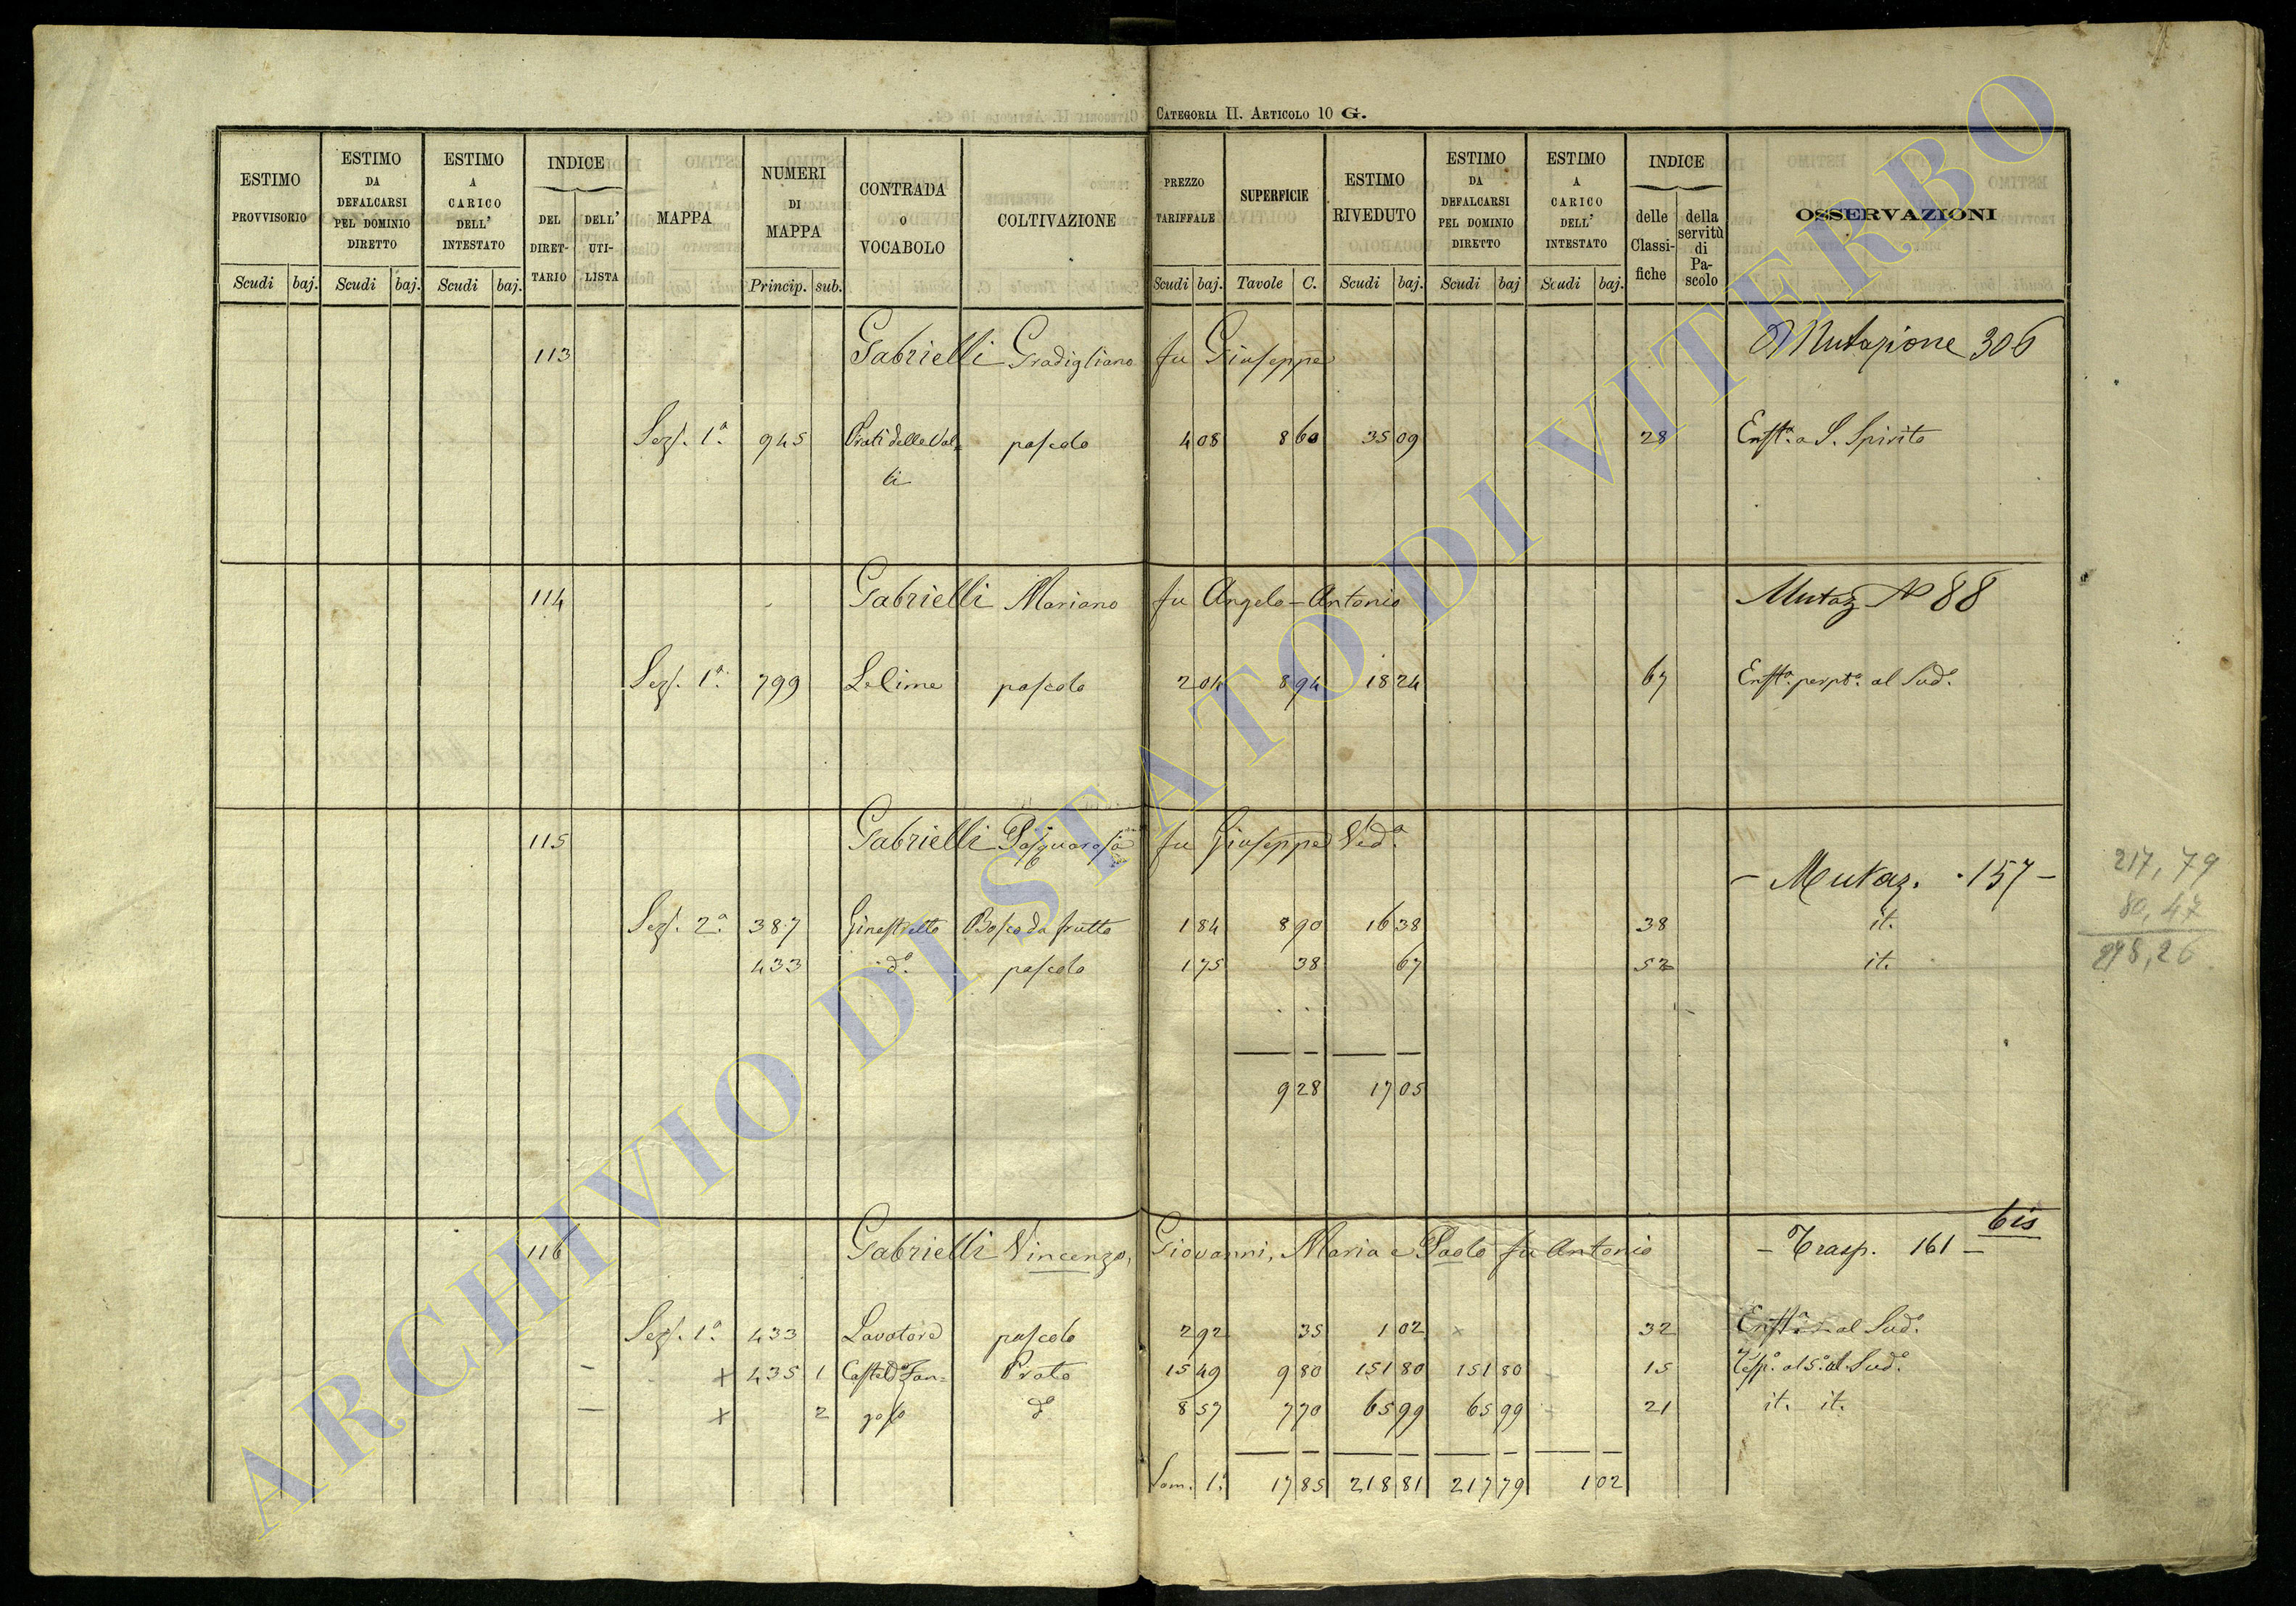 CATEGORIA II. ARTICOLO 10 G.
ESTIMO PROVVISORIO Scudi baj. | ESTIMO DA DEFALCARSI PEL DOMINIO DIRETTO Scudi baj. | ESTIMO A CARICO DELL' INTESTATO Scudi baj. | INDICE DEL DIRET-TARIO DELL' UTI-LISTA | MAPPA | NUMERI DI MAPPA Princip. sub. | CONTRADA O VOCABOLO | COLTIVAZIONE | PREZZO TARIFFALE Scudi baj. | SUPERFICIE Tavole C. | ESTIMO RIVEDUTO Scudi baj. | ESTIMO DA DEFALCARSI PEL DOMINIO DIRETTO Scudi baj | ESTIMO A CARICO DELL' INTESTATO Scudi baj. | INDICE delle Classi-fiche della servitù di Pa-scolo | OSSERVAZIONI
113 Gabrielli Gradigliano fu Giuseppe Mutazione 306
Sez. 1ª 945 Prati della Val= pascolo 4 08 8 60 35 09 28 Enft.ª a S. Spirito
li
114 Gabrielli Mariano fu Angelo-Antonio Mutaz N 88
Sez. 1ª 799 Le Lime pascolo 2 04 8 94 18 24 67 Enft.ª perpt.ª al Sud.º
115 Gabrielli Pasquarosa fu Giuseppe Ved.ª
- Mutaz. 157 -
217,79
Sez. 2.ª 387 Ginestretto Bosco da frutto 1 84 8 90 16 38 38 it.
80,47
433 d.º pascolo 1 75 38 67 52 it.
298,26
9 28 17 05
bis
116 Gabrielli Vincenzo, Giovanni, Maria e Paolo fu Antonio - Trasp. 161 -
Sez. 1ª 433 Lavatore pascolo 2 92 35 1 02 × 32 al Sud.º
- × 435 1 Castel d. Zan= Prato 15 49 9 80 151 80 151 80 - 15 al Sud.º
- × 2 d.º 8 57 7 70 65 99 65 99 - 21 it. it.
Som. 1ª 17 85 218 81 217 79 1 02
ARCHIVIO DI STATO DI VITERBO